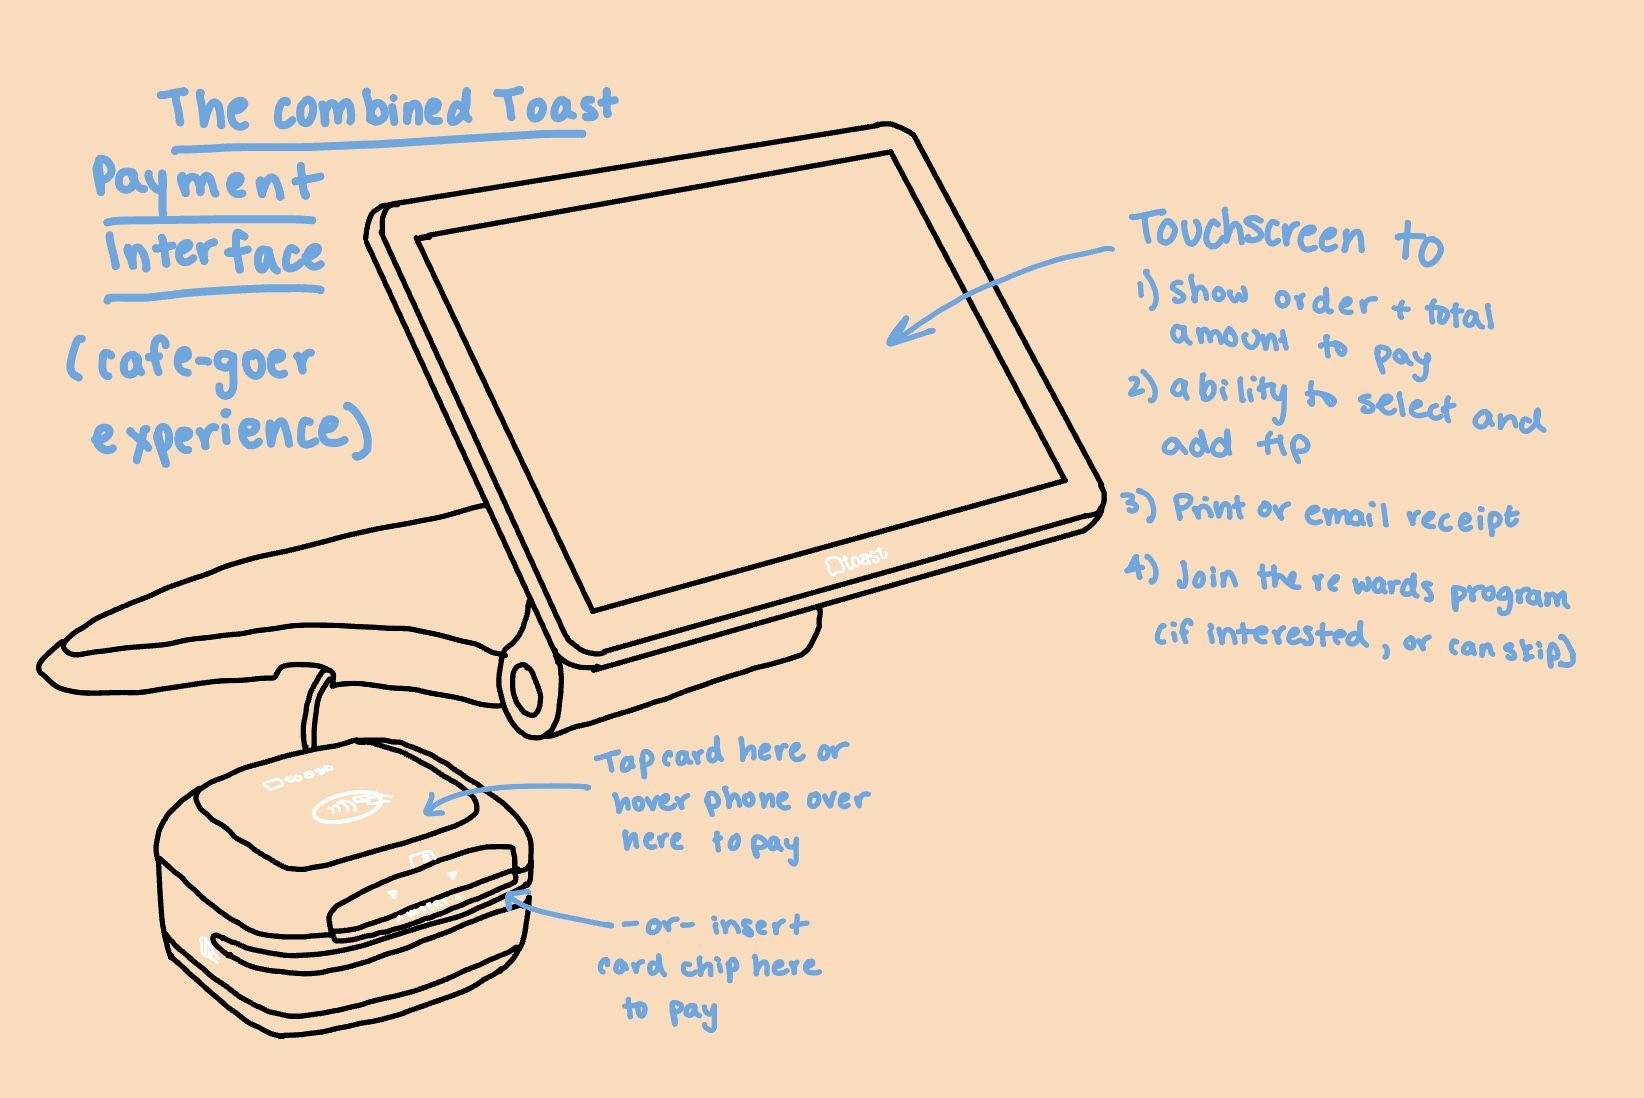 The combined Toast
Payment
Interface
(cafe-goer
experience)
Touchscreen to
1) show order + total
amount to pay
2) ability to select and
add tip
3) Print or email receipt
4) Join the rewards program
(if interested, or can skip)
toast
Tap card here or
hover phone over
here to pay
toast
- or - insert
card chip here
to pay